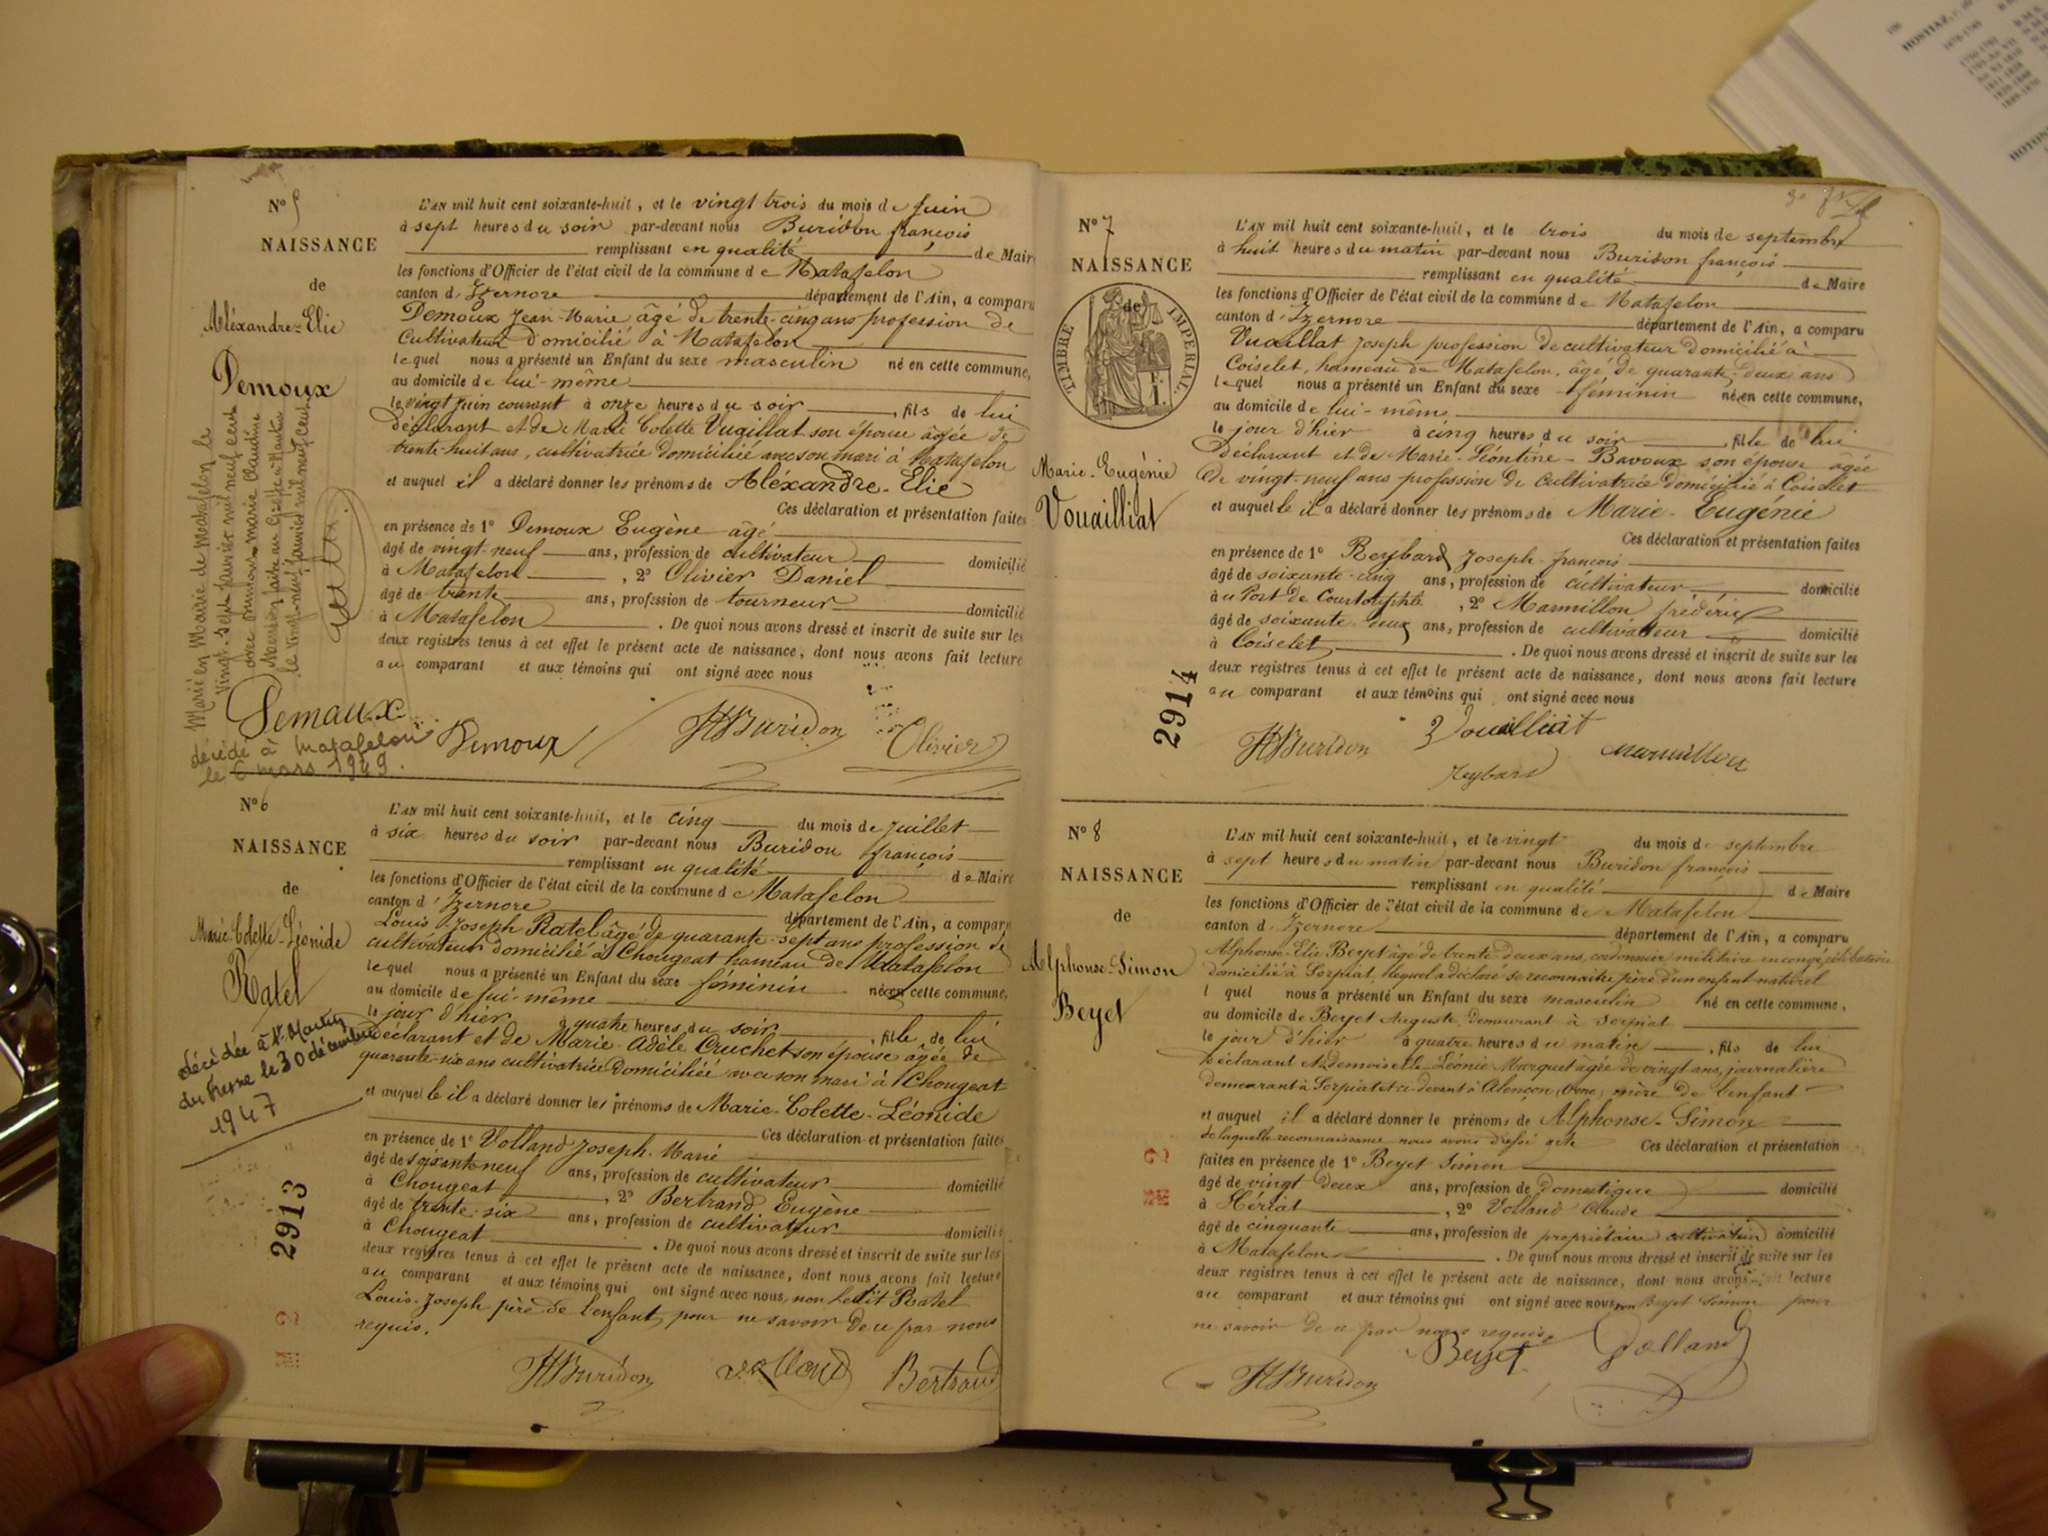 N° 5
NAISSANCE
de
Aléxandre-Elie
Demoux
Marié en Mairie de Matafelon le
Vingt-sept janvier mil neuf cent
avec marie Claudine
Mention faite au Greffe de Nantua
le vingt-neuf janvier mil neuf cent
décédé à Matafelon
le 6 mars 1949.
L'AN mil huit cent soixante-huit, et le vingt trois du mois de juin
à sept heures du soir par-devant nous Buridon françois
remplissant en qualité de Maire
les fonctions d'Officier de l'état civil de la commune de Matafelon
canton d'Izernore département de l'Ain, a comparu
Demoux Jean-Marie âgé de trente-cinq ans profession de
Cultivateur Domicilié à Matafelon
lequel nous a présenté un Enfant du sexe masculin né en cette commune,
au domicile de lui-même
le vingt juin courant à onze heures du soir, fils de lui
déclarant et de Marie Colette Vuaillat son épouse âgée de
trente-huit ans, cultivatrice domiciliée avec son mari à Matafelon
et auquel il a déclaré donner les prénoms de Aléxandre-Elie
Ces déclaration et présentation faites
en présence de 1° Demoux Eugène âgé
âgé de vingt-neuf ans, profession de cultivateur domicilié
à Matafelon, 2° Olivier Daniel
âgé de trente ans, profession de tourneur domicilié
à Matafelon. De quoi nous avons dressé et inscrit de suite sur les
deux registres tenus à cet effet le présent acte de naissance, dont nous avons fait lecture
au comparant et aux témoins qui ont signé avec nous
Demoux Demoux Buridon Olivier
N° 6
NAISSANCE
de
Marie-Colette-Léonide
Ratel
décédée à St Martin
du Fresne le 30 décembre
1947
2913
L'AN mil huit cent soixante-huit, et le cinq du mois de juillet
à six heures du soir par-devant nous Buridon françois
remplissant en qualité de Maire
les fonctions d'Officier de l'état civil de la commune de Matafelon
canton d'Izernore département de l'Ain, a comparu
Louis Joseph Ratel âgé de quarante-sept ans profession de
cultivateur domicilié à Chougeat hameau de Matafelon
lequel nous a présenté un Enfant du sexe féminin née en cette commune,
au domicile de lui-même
le jour d'hier à quatre heures du soir, fille de lui
déclarant et de Marie-Adèle Cruchet son épouse âgée de
quarante-six ans cultivatrice Domiciliée avec son mari à Chougeat
et auquel le il a déclaré donner les prénoms de Marie-Colette-Léonide
Ces déclaration et présentation faites
en présence de 1° Volland Joseph-Marie
âgé de soixante neuf ans, profession de cultivateur domicilié
à Chougeat, 2° Bertrand Eugène
âgé de trente-six ans, profession de cultivateur domicilié
à Chougeat. De quoi nous avons dressé et inscrit de suite sur les
deux registres tenus à cet effet le présent acte de naissance, dont nous avons fait lecture
au comparant et aux témoins qui ont signé avec nous, non ledit Ratel
Louis-Joseph père de l'enfant, pour ne savoir de ce par nous
requis.
Buridon Volland Bertrand
N° 7
NAISSANCE
de
TIMBRE IMPÉRIAL
Marie-Eugénie
Vouailliat
2914
L'AN mil huit cent soixante-huit, et le trois du mois de septembre
à huit heures du matin par-devant nous Buridon françois
remplissant en qualité de Maire
les fonctions d'Officier de l'état civil de la commune de Matafelon
canton d'Izernore département de l'Ain, a comparu
Vuaillat Joseph profession de cultivateur domicilié à
Coiselet, hameau de Matafelon, âgé de quarante-deux ans
lequel nous a présenté un Enfant du sexe féminin née en cette commune,
au domicile de lui-même
le jour d'hier à cinq heures du soir, fille de lui
déclarant et de Marie-Léontine-Bavoux son épouse âgée
de vingt-neuf ans profession de Cultivatrice domicilié à Coiselet
et auquel le il a déclaré donner les prénoms de Marie-Eugénie
Ces déclaration et présentation faites
en présence de 1° Reybard Joseph-françois
âgé de soixante-cinq ans, profession de cultivateur domicilié
au Port de, 2° Marmillon frédéric
âgé de soixante-deux ans, profession de cultivateur domicilié
à Coiselet. De quoi nous avons dressé et inscrit de suite sur les
deux registres tenus à cet effet le présent acte de naissance, dont nous avons fait lecture
au comparant et aux témoins qui ont signé avec nous
Buridon Vouailliat Marmillon
Reybard
N° 8
NAISSANCE
de
Alphonse-Simon
Beyet
L'AN mil huit cent soixante-huit, et le vingt du mois de septembre
à sept heures du matin par-devant nous Buridon françois
remplissant en qualité de Maire
les fonctions d'Officier de l'état civil de la commune de Matafelon
canton d'Izernore département de l'Ain, a comparu
Alphonse-Elie Beyet âgé de trente-deux ans, cordonnier militaire en congé, célibataire
domicilié à Sorpiat, lequel a déclaré se reconnaître père d'un enfant naturel
l quel nous a présenté un Enfant du sexe masculin né en cette commune,
au domicile de Beyet Auguste, demeurant à Sorpiat
le jour d'hier à quatre heures du matin, fils de lui
Déclarant et demoiselle Léonie Marquet âgée de vingt ans, journalière
demeurant à Sorpiat et ci-devant à Alençon (Orne) mère de l'enfant
et auquel il a déclaré donner le prénoms de Alphonse-Simon
de laquelle reconnaissance nous avons dressé acte Ces déclaration et présentation
faites en présence de 1° Beyet Simon
âgé de vingt deux ans, profession de domestique domicilié
à Hériat, 2° Volland Claude
âgé de cinquante ans, profession de propriétaire cultivateur domicilié
à Matafelon. De quoi nous avons dressé et inscrit de suite sur les
deux registres tenus à cet effet le présent acte de naissance, dont nous avons fait lecture
au comparant et aux témoins qui ont signé avec nous non Beyet Simon pour
ne savoir de ce par nous requis.
Buridon Beyet Volland